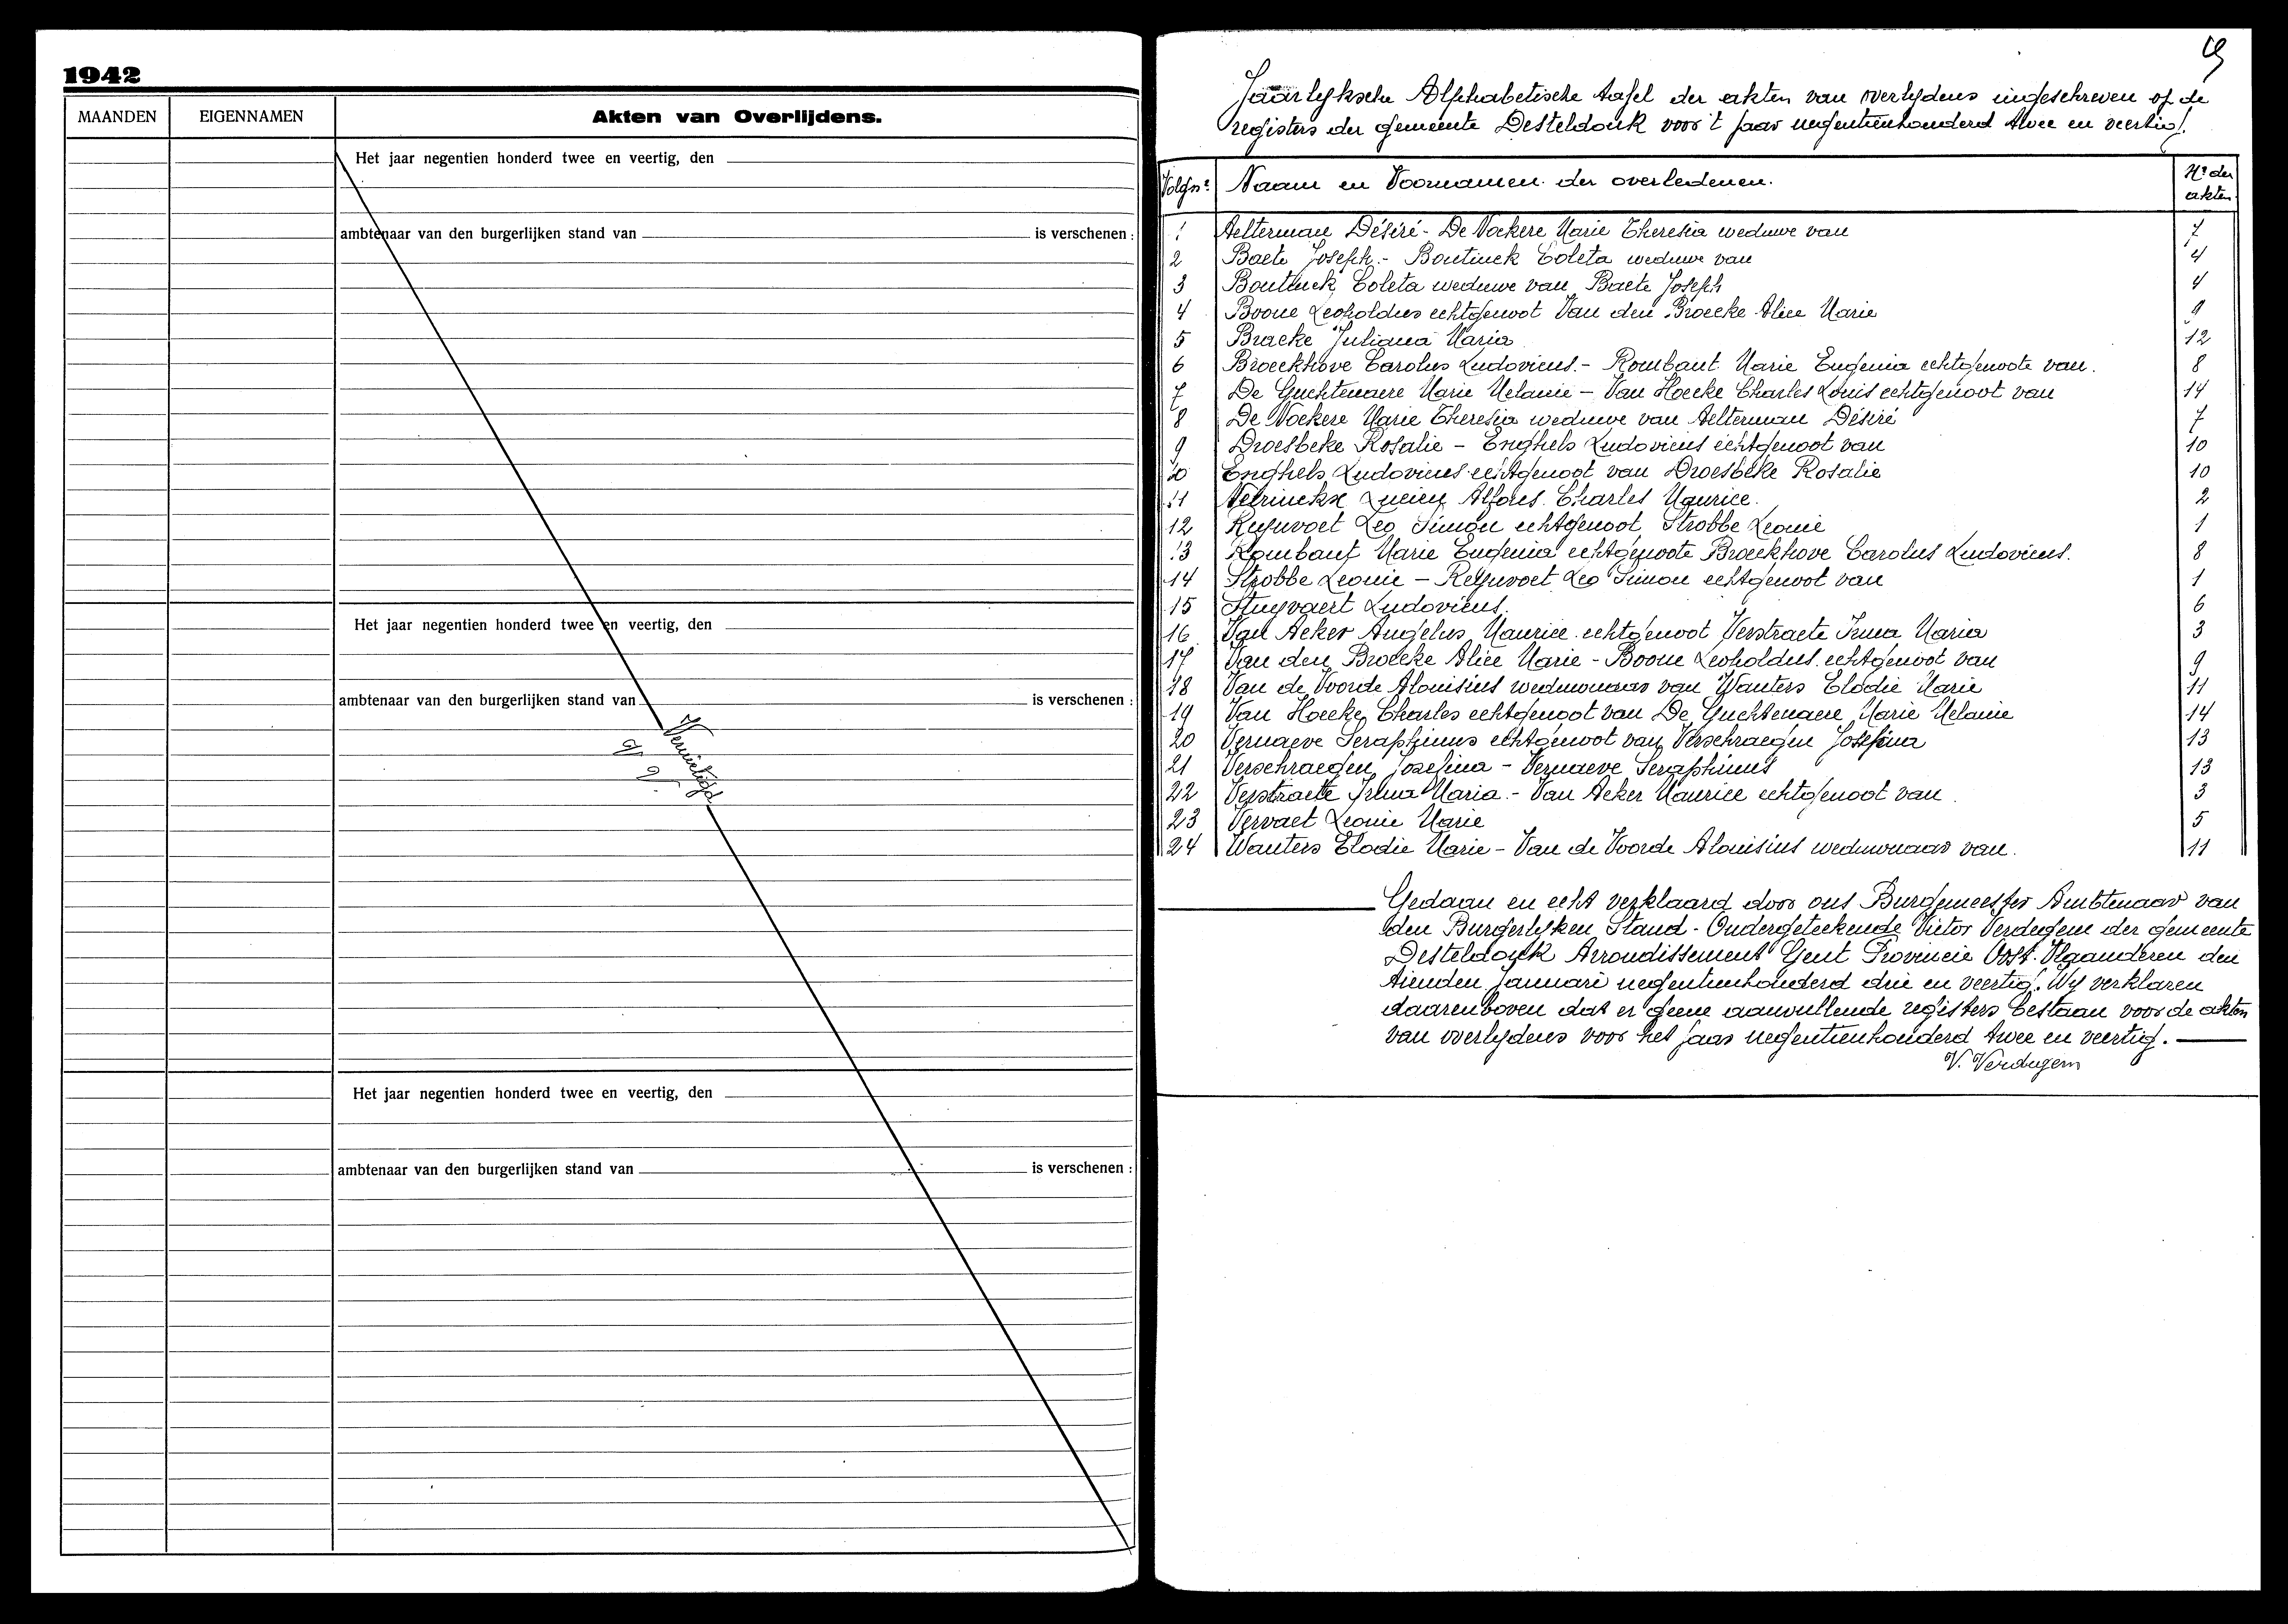 1942
MAANDEN EIGENNAMEN Akten van Overlijdens.
Het jaar negentien honderd twee en veertig, den
ambtenaar van den burgerlijken stand van is verschenen :
Het jaar negentien honderd twee en veertig, den
ambtenaar van den burgerlijken stand van is verschenen :
Vernietigd
Het jaar negentien honderd twee en veertig, den
ambtenaar van den burgerlijken stand van is verschenen :
Jaarlyksche Alphabetische tafel der akten van overlydens ingeschreven op de
registers der gemeente Desteldonk voor 't jaar negentienhonderd twee en veertig.
Volgnr Naam en Voornamen der overledenen. Nr der
akten
1 Aelterman Désiré - De Vockere Marie Theresia weduwe van 7
2 Baete Joseph - Boutinck Coleta weduwe van 4
3 Boutinck Coleta weduwe van Baete Joseph 4
4 Boone Leopoldus echtgenoot Van den Broecke Alice Marie 9
5 Bracke Juliana Maria 12
6 Broeckhove Carolus Ludovicus - Rombaut Marie Eugenia echtgenoote van. 8
7 De Guchtenaere Marie Melanie - Van Hoecke Charles Louis echtgenoot van 14
8 De Vockere Marie Theresia weduwe van Aelterman Désiré 7
9 Droesbeke Rosalie - Enghels Ludovicus echtgenoot van 10
10 Enghels Ludovicus echtgenoot van Droesbeke Rosalie 10
11 Lucien Alfons Charles Maurice. 2
12 Reynvoet Leo Simon echtgenoot Strobbe Leonie 1
13 Rombaut Marie Eugenia echtgenoote Broeckhove Carolus Ludovicus. 8
14 Strobbe Leonie - Reynvoet Leo Simon echtgenoot van 1
15 Stuyvaert Ludovicus. 6
16 Van Acker Angelus Maurice echtgenoot Verstraete Irma Maria 3
17 Van den Broecke Alice Marie - Boone Leopoldus echtgenoot van 9
18 Van de Voorde Alouisius weduwnaar van Wauters Elodie Marie 11
19 Van Hoecke Charles echtgenoot van De Guchtenaere Marie Melanie 14
20 Vernaeve Seraphinus echtgenoot van Verschraegen Josefina 13
21 Verschraegen Josefina - Vernaeve Seraphinus 13
22 Verstraete Irma Maria - Van Acker Maurice echtgenoot van 3
23 Vervaet Leonie Marie 5
24 Wauters Elodie Marie - Van de Voorde Alouisius weduwnaar van. 11
Gedaan en echt verklaard door ons Burgemeester Ambtenaar van
den Burgerlyken Stand - Ondergeteekende Victor Verdegem der gemeente
Desteldonk Arrondissement Gent Provincie Oost-Vlaanderen den
tienden januari negentienhonderd drie en veertig. Wy verklaren
daarenboven dat er geene aanvullende registers bestaan voor de akten
van overlydens voor het jaar negentienhonderd twee en veertig.
V. Verdegem